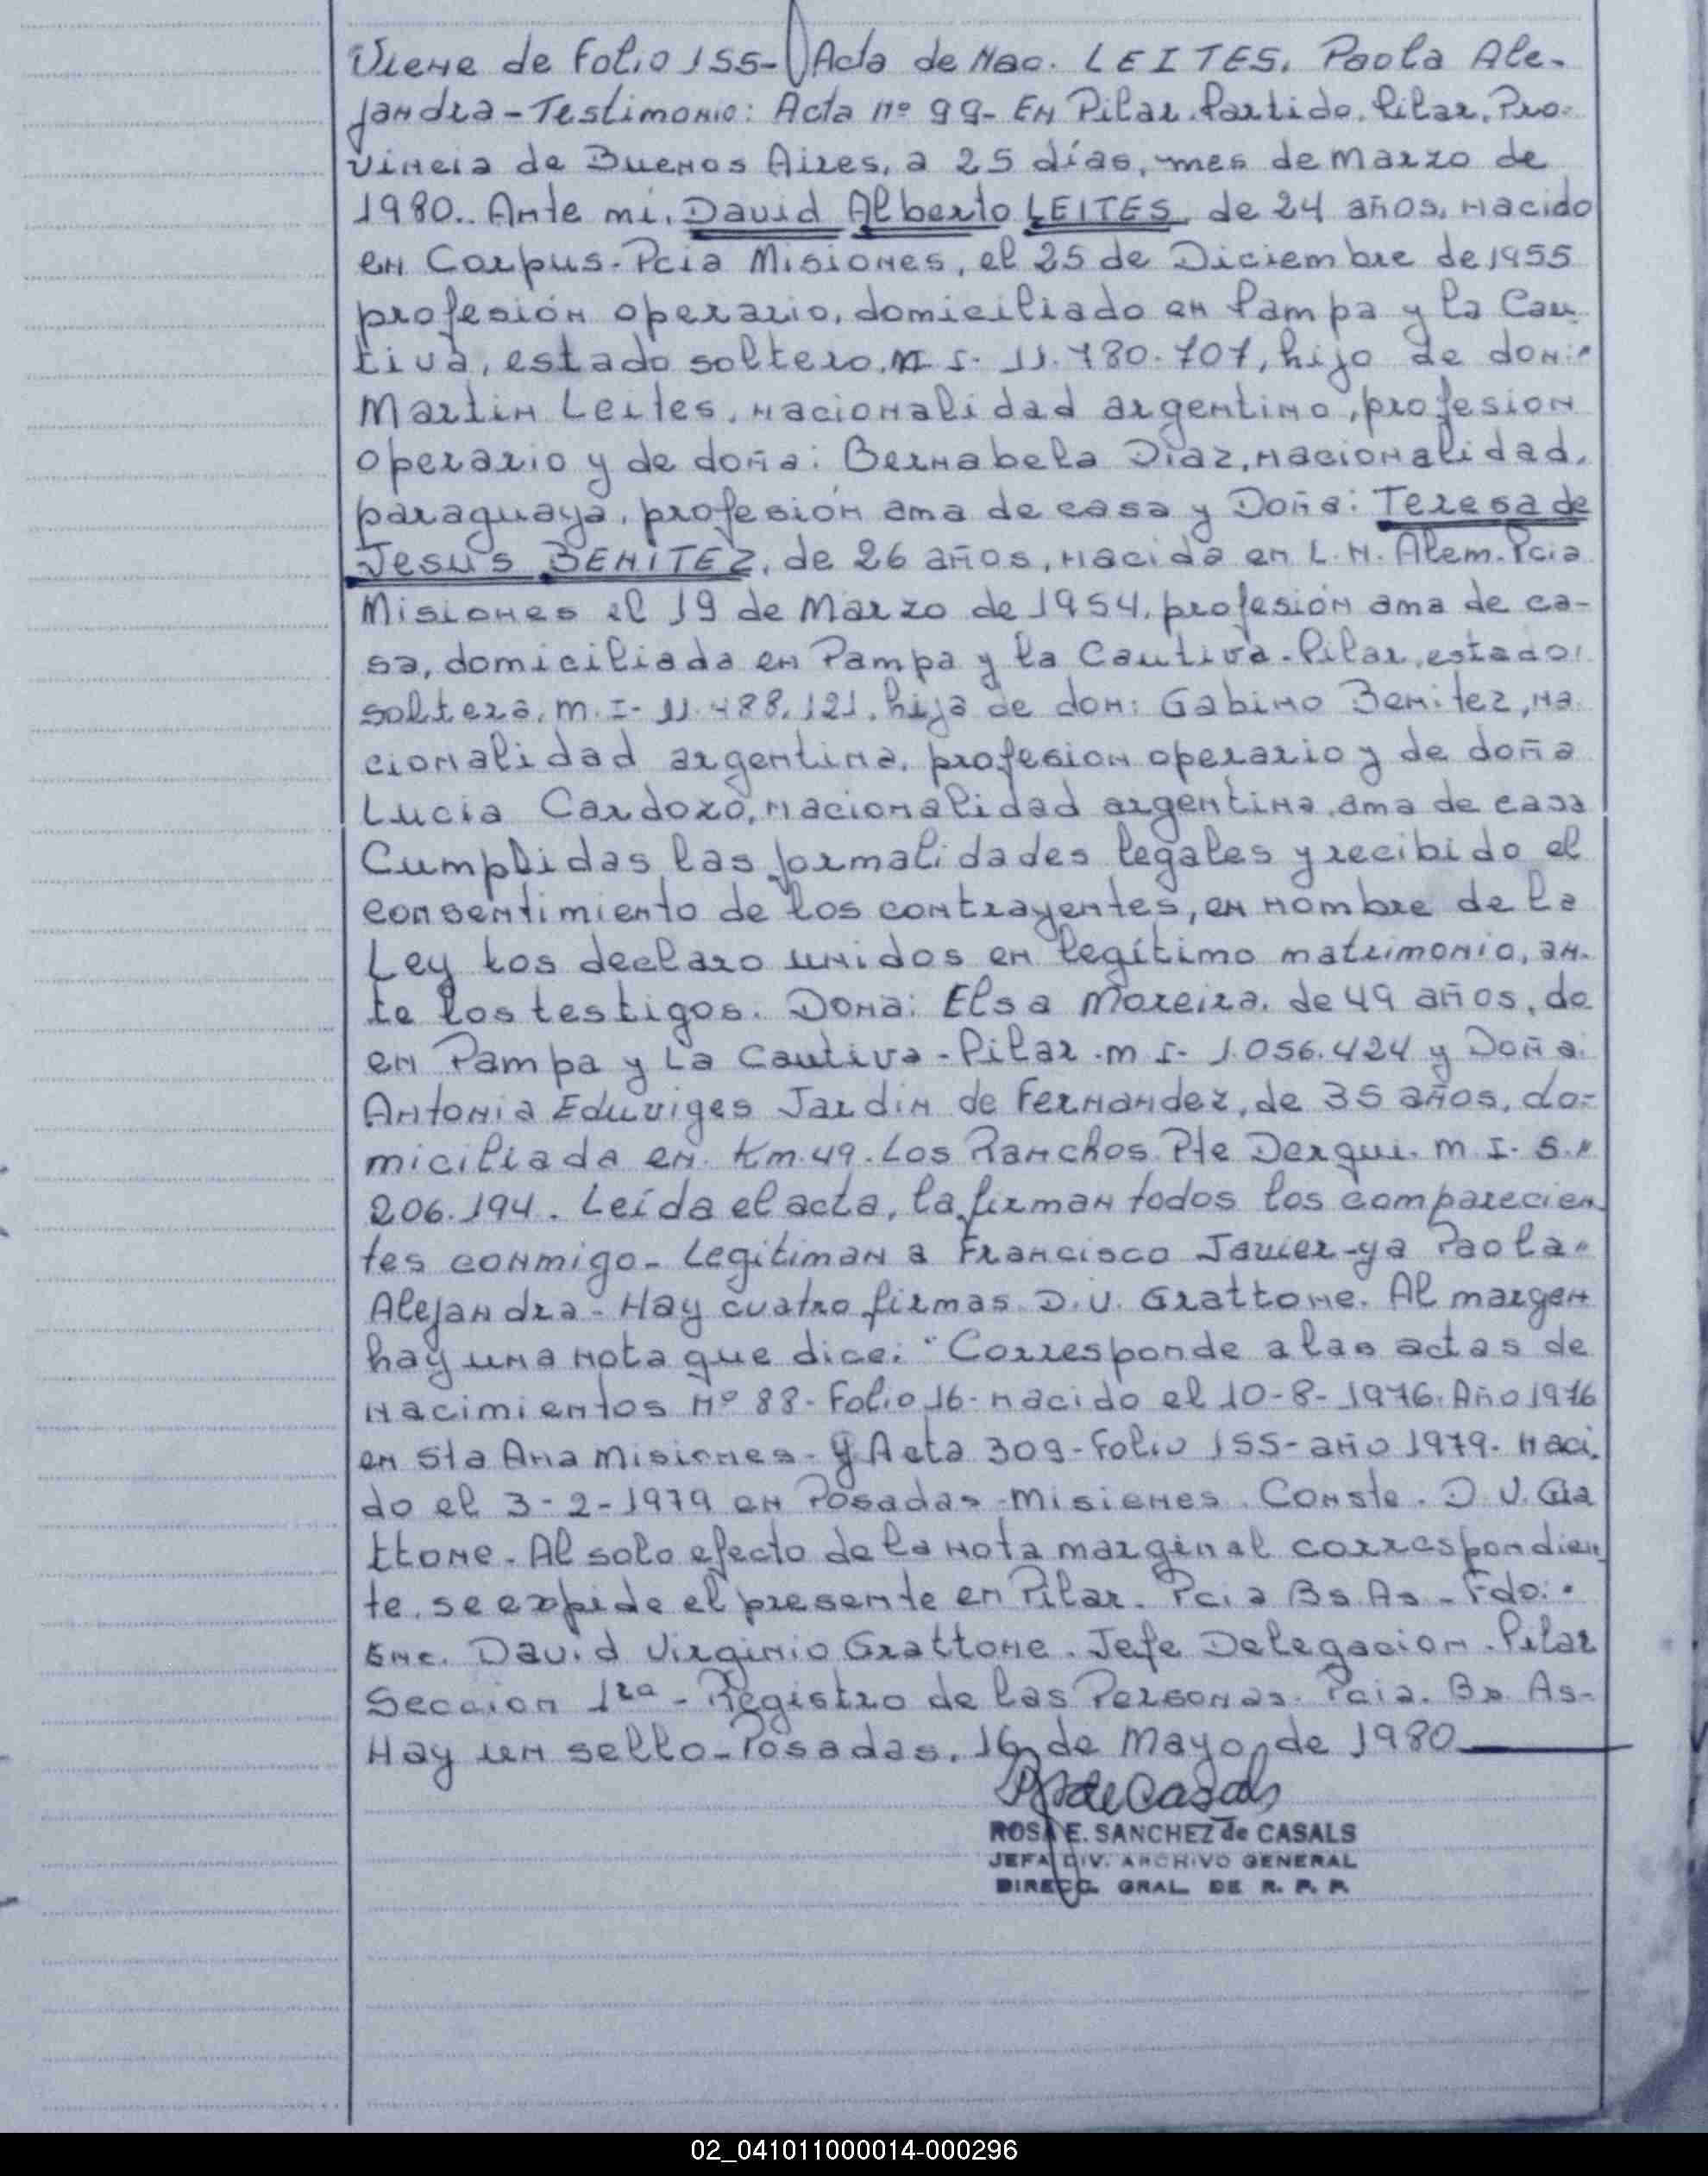 Viene de Folio 155- Acta de Nac. LEITES. Paola Ale-
jandra - Testimonio: Acta nº 99- En Pilar. Partido. Pilar. Pro-
vincia de Buenos Aires, a 25 días, mes de marzo de
1980.. Ante mi, David Alberto LEITES, de 24 años, nacido
en Corpus. Pcia Misiones, el 25 de Diciembre de 1955
profesión operario, domiciliado en Pampa y la Cau
tiva, estado soltero, M I- 11.780.707, hijo de don:
Martin Leites, nacionalidad argentino, profesion
operario y de doña: Bernabela Diaz, nacionalidad,
paraguaya, profesión ama de casa y Doña: Teresa de
Jesus BENITEZ, de 26 años, nacida en L.N. Alem. Pcia
Misiones el 19 de Marzo de 1954, profesión ama de ca-
sa, domiciliada en Pampa y la Cautiva - Pilar, estado
soltera, m. I- 11.488.121, hija de don: Gabino Benitez, na
cionalidad argentina, profesion operario y de doña
Lucia Cardozo, nacionalidad argentina, ama de casa
Cumplidas las formalidades legales y recibido el
consentimiento de los contrayentes, en nombre de la
Ley los declaro unidos en legítimo matrimonio, an-
te los testigos. Dona: Elsa Moreira, de 49 años, do
en Pampa y La Cautiva - Pilar. m I- 1.056.424 y Doña:
Antonia Eduviges Jardin de Fernandez, de 35 años, do-
miciliada en Km. 49. Los Ranchos. Pte Derqui. m I- 5.
206.194. Leída el acta, la firman todos los comparecien
tes conmigo - Legitiman a Francisco Javier - y a Paola
Alejandra - Hay cuatro firmas D.V. Grattone. Al margen
hay una nota que dice: "Corresponde a las actas de
nacimientos Nº 88 - Folio 16 - nacido el 10-8-1976. Año 1976
en Sta Ana Misiones - y Acta 309 - Folio 155 - año 1979. Naci.
do el 3-2-1979 en Posadas - Misiones. Conste. D.V. Gra
ttone - Al solo efecto de la nota marginal correspondien
te, se expide el presente en Pilar. Pcia Bs. As - Fdo.
Enc. David Virginio Grattone. Jefe Delegacion. Pilar
Seccion 1ra - Registro de las Personas. Pcia. Bs As-
Hay un sello - Posadas, 16 de Mayo de 1980
ROSA E. SANCHEZ de CASALS
JEFA DIV. ARCHIVO GENERAL
DIRECC. GRAL DE R. P. P.
02_041011000014-000296